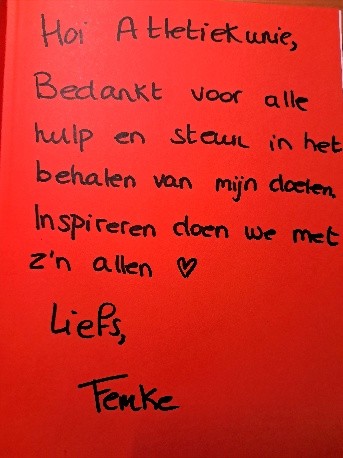 Hoi Atletiekunie,
Bedankt voor alle
hulp en steun in het
behalen van mijn doelen.
Inspireren doen we met
z'n allen ♡
Liefs,
Femke